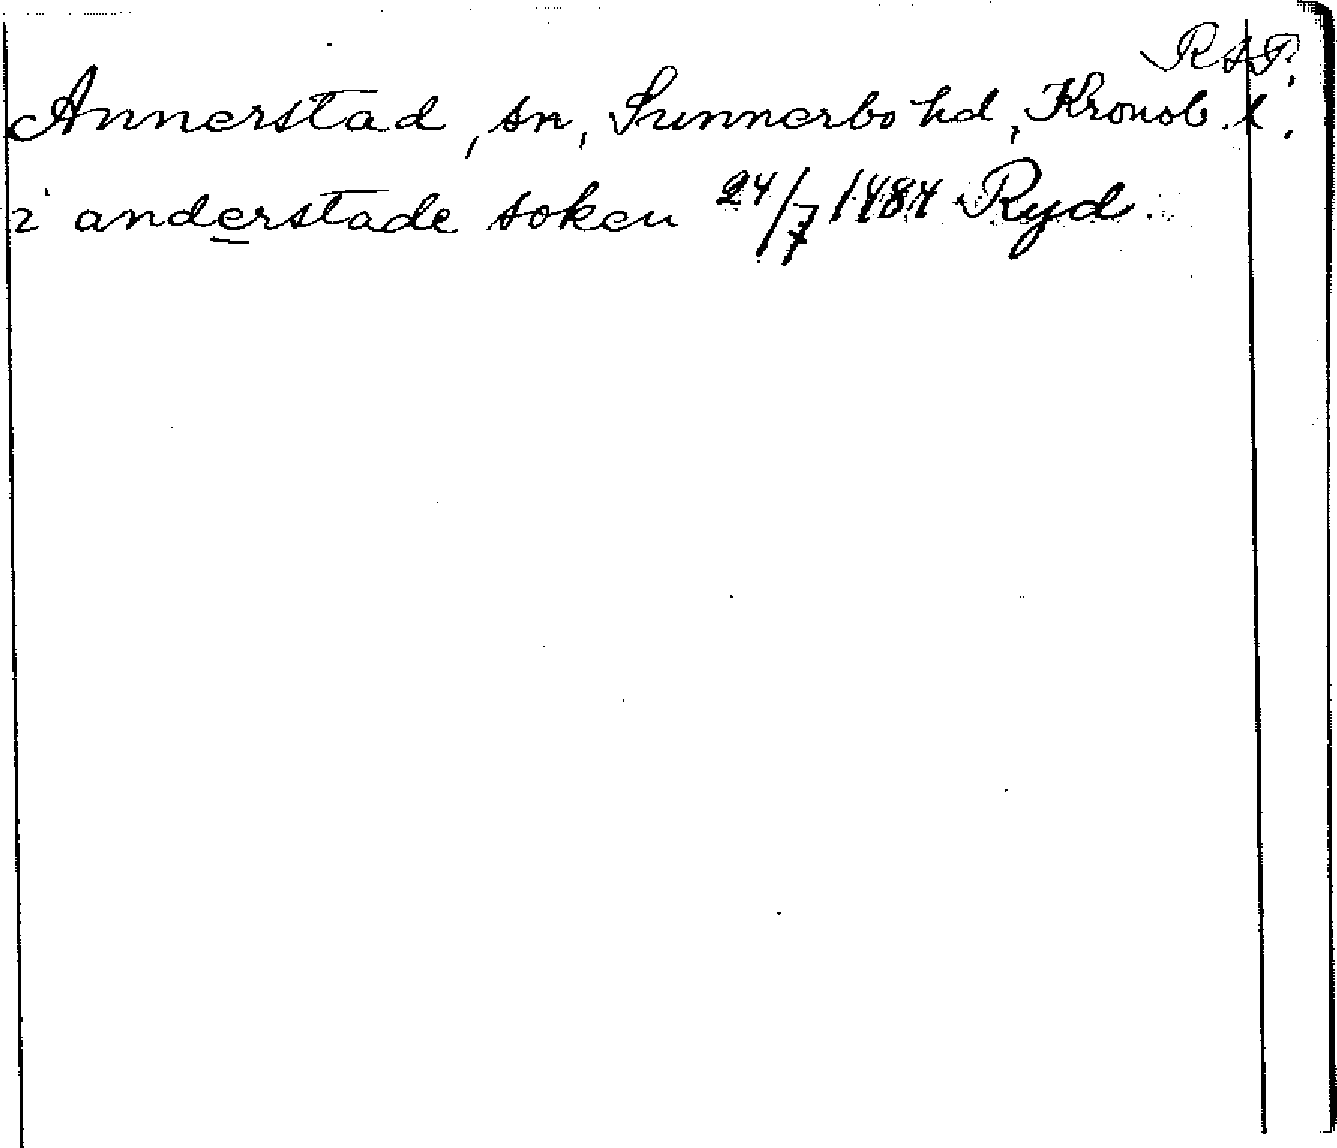 R s T.
Annerstad, sn, Sunnerbo hd, Kronob. l.
i anderstade soken 24/7 1484 Ryd.